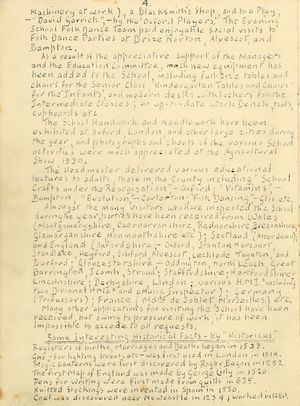 4.
Machinery at work), a Blacksmith's Shop, and to a Play,
- "David Garrick", - by the "Oxford Players". The Evening
School Folk Dance Team paid enjoyable Social visits to
Folk Dance Parties at Brize Norton, Alvescot, and
Bampton.
As a result of the appreciative Support of the Managers
and the Education Committee, much new equipment has
been added to the School, including full-size tables and
chairs for the Senior Class, Kindergarten Tables and Chairs
for the Infants, and modern desks with lockers for the
Intermediate Classes; also up-to-date Work bench, tools,
cupboards etc.
The School Handwork and Needlework have been
exhibited at Oxford, London, and other large cities during
the year, and photographs and charts of the various School
activities were much appreciated at the Agricultural
Show 1930.
The Headmaster delivered various educational
lectures to adults, those in the County including "School
Crafts under the Reorganisation" - Oxford; "Vitamins" -
Bampton; "Evolution" - Carterton; "Folk Dancing" - Glos. etc.
Amongst the many visitors who have inspected the School
during the year, parties have been received from Wales
(Montgomeryshire, Caernarvonshire, Radnorshire, Breconshire,
Glamorganshire, Monmouthshire etc); Scotland (Aberdeen);
and England (Oxfordshire, - Oxford, Stanton Harcourt,
Standlake, Heyford, Clifford, Alvescot, Lechlade, Taynton, and
Burford; Gloucestershire - Oddington, Northleach, Great
Barrington, Icomb, Stroud; Staffordshire; Hertfordshire;
Lincolnshire; Derbyshire; London; various H.M.I. including
two Divional HMIs and a Music Inspector); Germany
(Professors); France (Mdlle de Sablet, Marseilles,) etc.
Many other applications for visiting the School have been
received, but owing to pressure of work, it has been
impossible to accede to all requests.
Some Interesting Historical Facts - by "Historicus."
Registers of Births, Marriages and Deaths began in 1533.
Gas - for lighting streets, etc - was first used in London in 1814.
Magic Lanterns were first discovered by Roger Bacon in 1252.
The first Map of England was made by George Lilly in 1520.
Pens for writing were first made from quills in 635.
Knitted Stockings were invented in Spain in 1550.
Coal was discovered near Newcastle in 1234; worked in 1280.